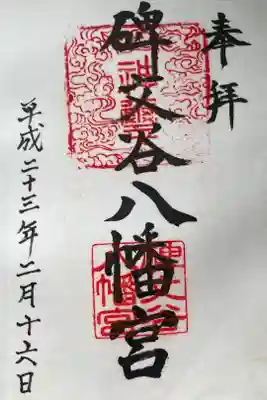 奉拝
碑文谷八幡宮
平成二十三年二月十六日
碑文谷八幡宮